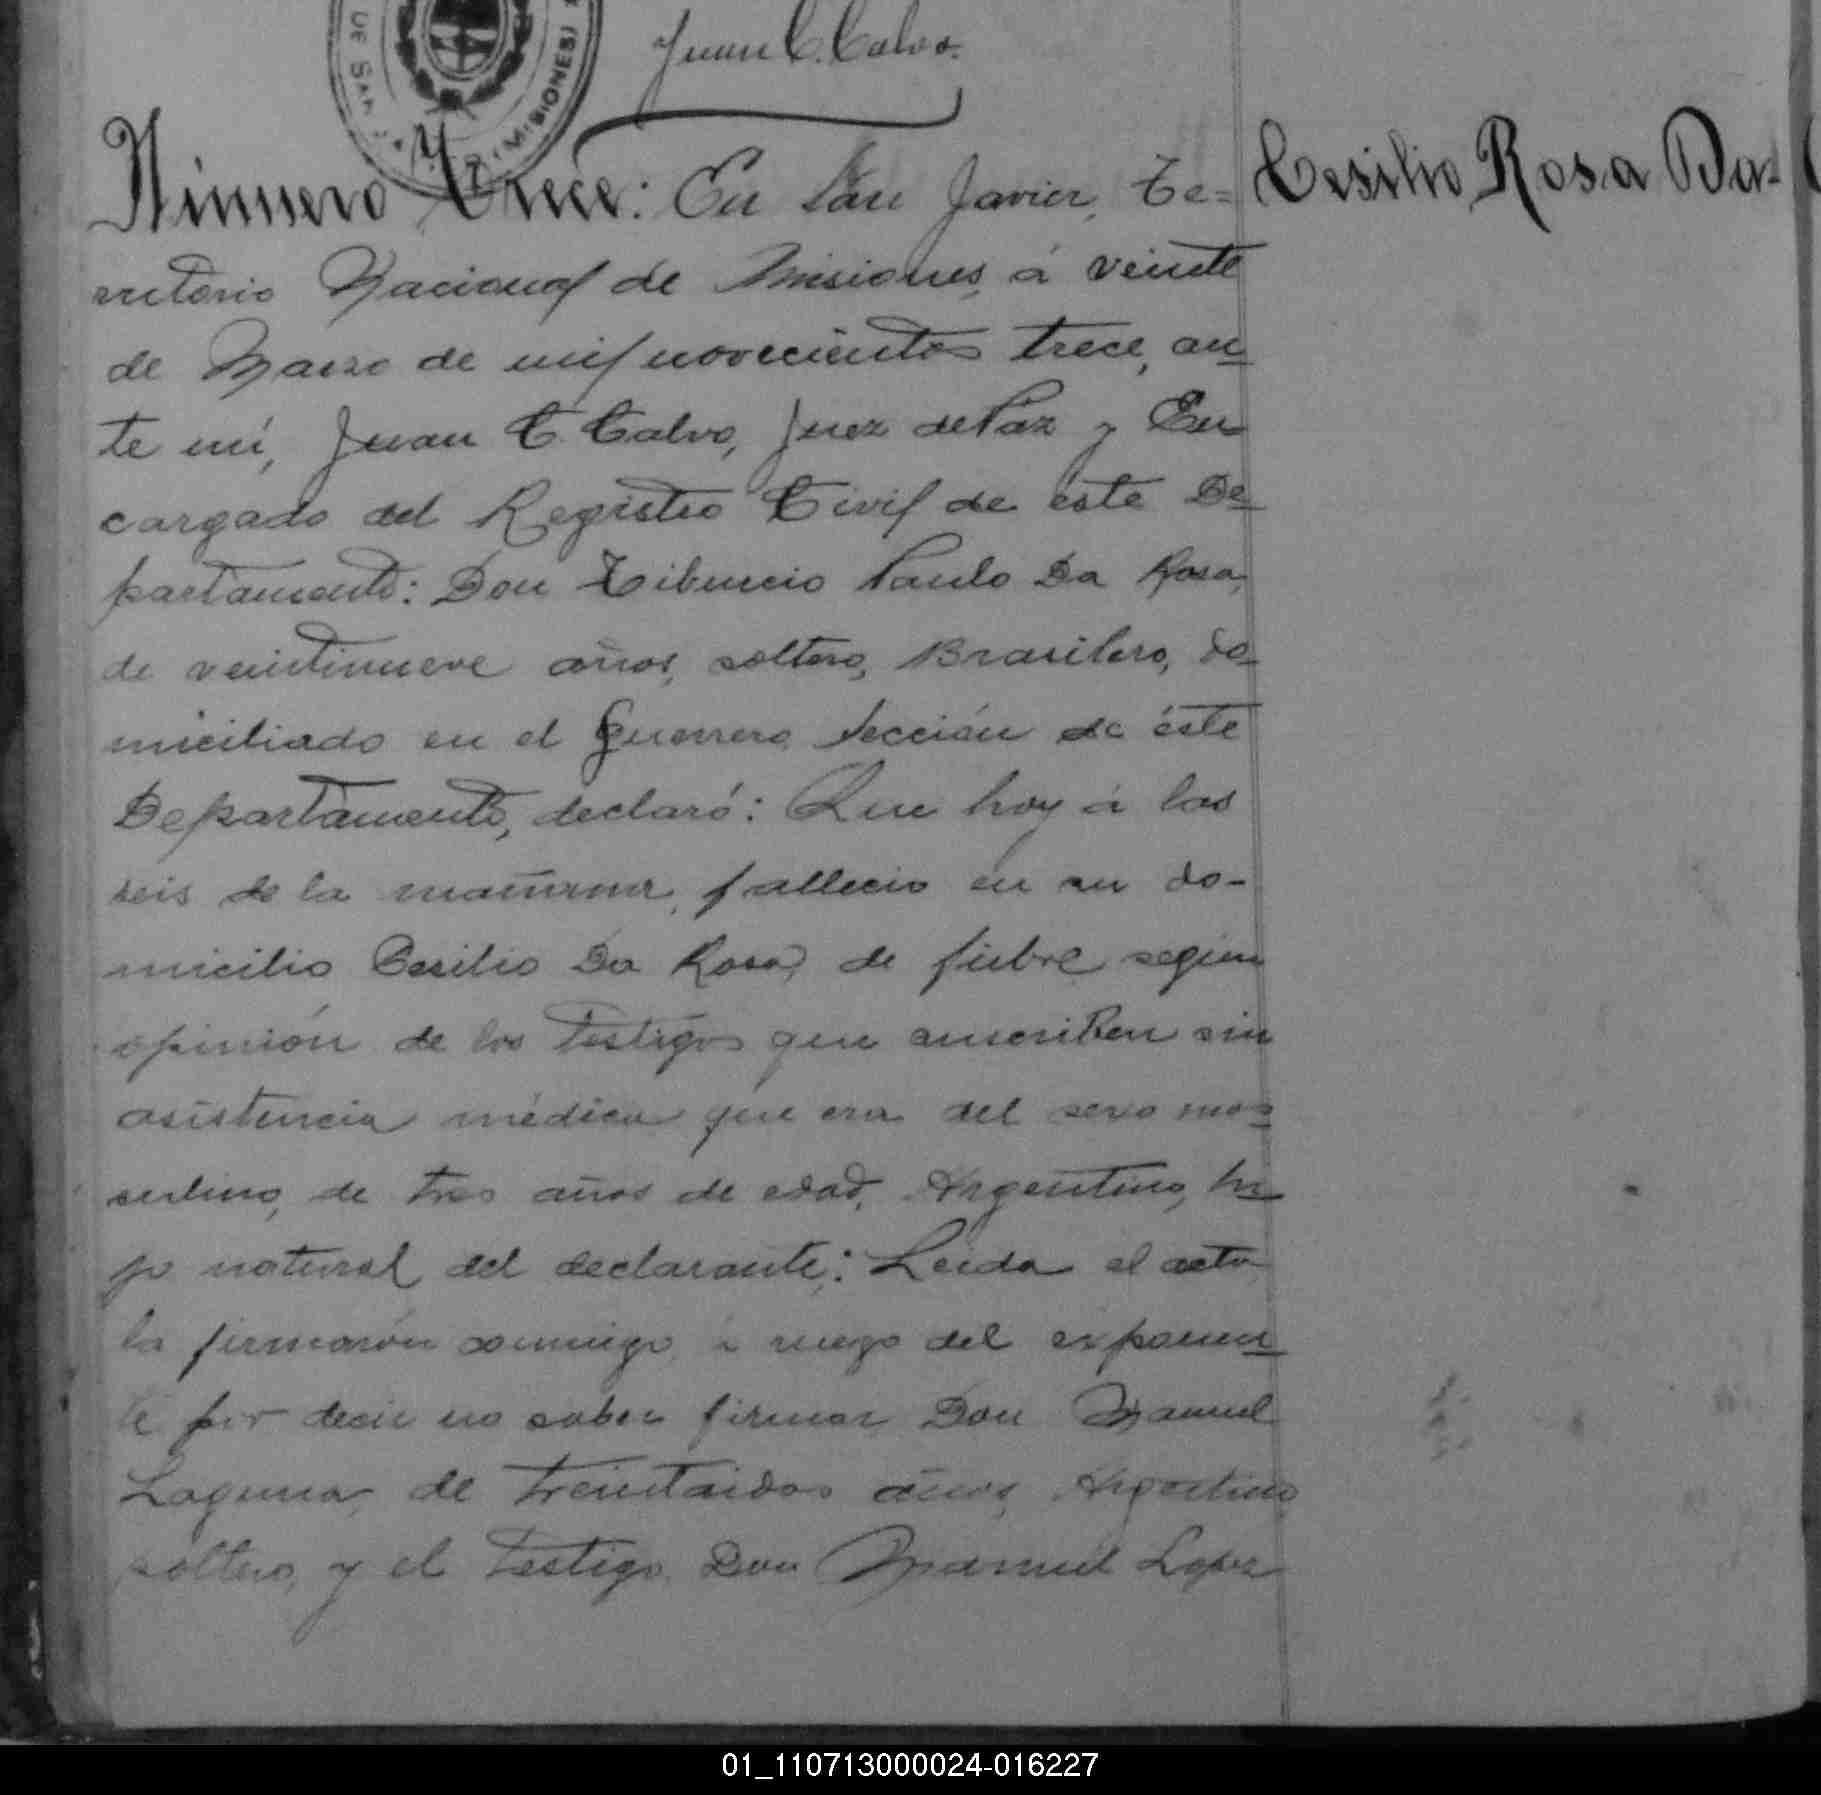 DE SAN
(MISIONES)
Juan C. Calvo.
Número Trece: En San Javier, Te=
rritorio Nacional de Misiones, á veinte
de Marzo de mil novecientos trece, an-
te mí, Juan C. Calvo, Juez de Paz y En-
cargado del Registro Civil de este De-
partamento: Don Tiburcio Paulo Da Rosa,
de veintinueve años, soltero, Brasilero, do-
miciliado en el Guerrero, Sección de éste
Departamento, declaró: Que hoy á las
seis de la mañana, fallecio en su do-
micilio Cesilio Da Rosa, de fiebre según
opinión de los testigos que suscriben sin
asistencia médica que era del sexo mas-
culino, de tres años de edad, Argentino, hi-
jo natural del declarante: Leida el acta
la firmarón conmigo, á ruego del exponen-
te por decir no saber firmar Don Manuel
Laguna, de treintaidos años, Argentino
soltero, y el testigo Don Manuel Lopez
Cesilio Rosa Da-
01_110713000024-016227